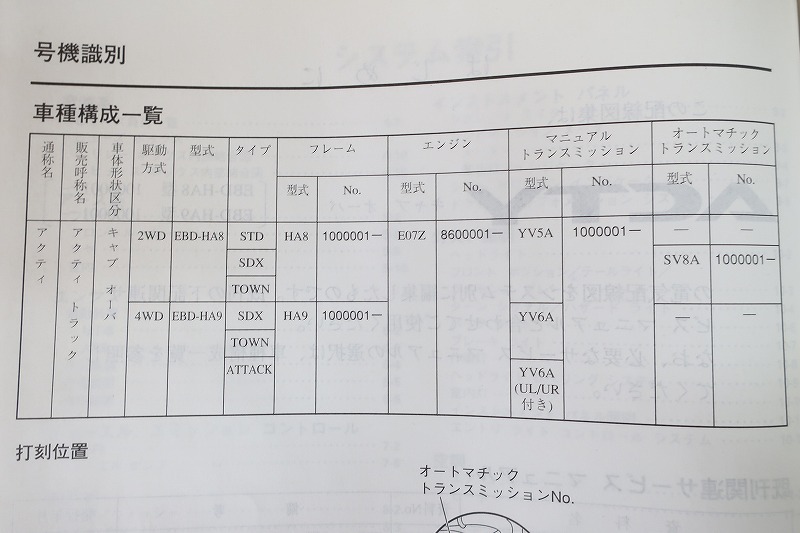 号機識別
車種構成一覧
通称名 販売呼称名 車体形状区分 駆動方式 型式 タイプ フレーム エンジン マニュアルトランスミッション オートマチックトランスミッション
型式 No. 型式 No. 型式 No. 型式 No.
アクティ アクティ トラック キャブ オーバ 2WD EBD-HA8 STD HA8 1000001― E07Z 8600001― YV5A 1000001― ― ―
SDX SV8A 1000001―
TOWN
4WD EBD-HA9 SDX HA9 1000001― YV6A ― ―
TOWN
ATTACK YV6A
(UL/UR
付き)
打刻位置
オートマチック
トランスミッションNo.